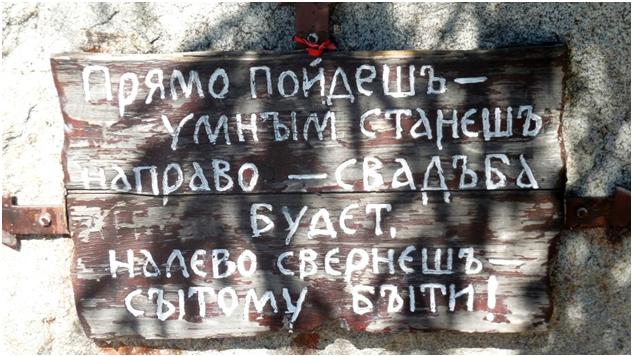 Прямо пойдешъ —
умнъім станєшъ
направо — свадъба
будєт,
налєво свєрнєшъ —
съітому бъіти!